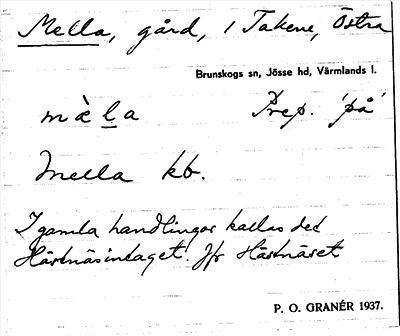 Mella, gård, i Takene, Östra
Brunskogs sn, Jösse hd, Värmlands l.
mὲla Prep. 'på'
Mella kb.
I gamla handlingar kallas det
Hästnäsintaget. Jfr Hästnäset
P. O. GRANÉR 1937.